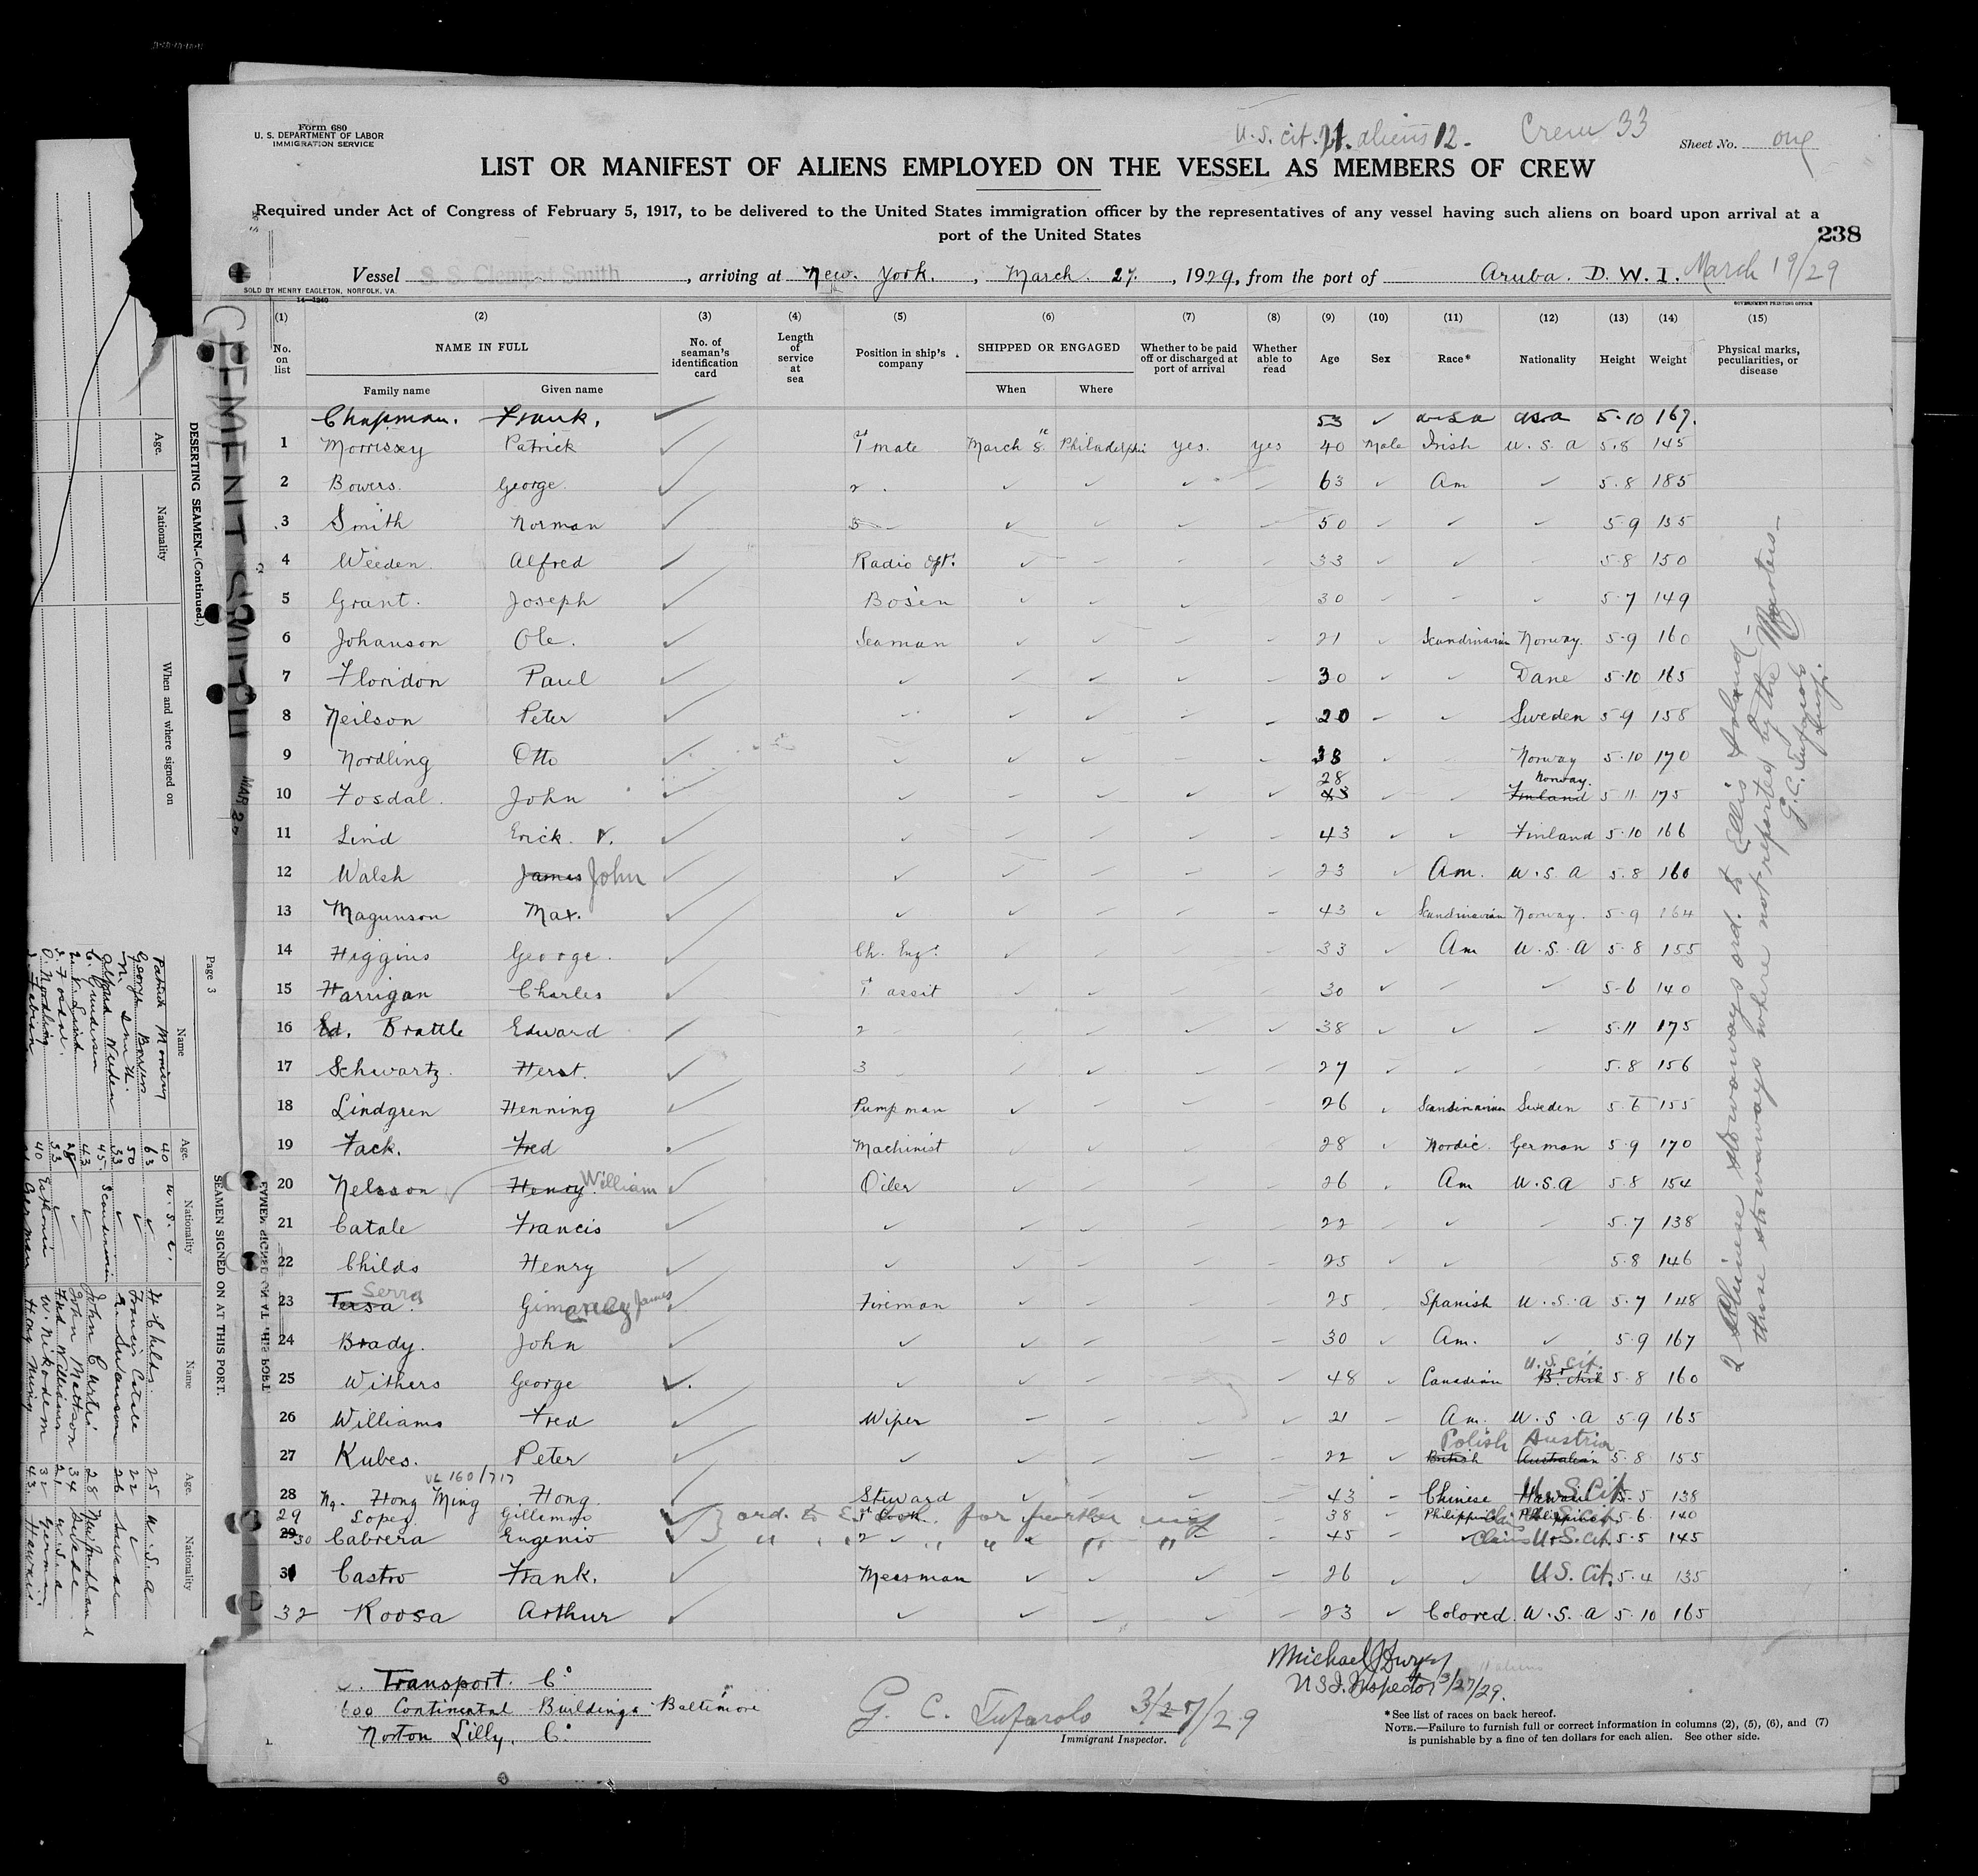 Form 680
U. S. DEPARTMENT OF LABOR
IMMIGRATION SERVICE
U.S. cit. 21. aliens 12 - Crew 33
Sheet No. one
LIST OR MANIFEST OF ALIENS EMPLOYED ON THE VESSEL AS MEMBERS OF CREW
Required under Act of Congress of February 5, 1917, to be delivered to the United States immigration officer by the representatives of any vessel having such aliens on board upon arrival at a
port of the United States
238
Vessel S. S. Clement Smith, arriving at New York, March 27, 1929, from the port of Aruba. D. W. I. March 19/29
SOLD BY HENRY EAGLETON, NORFOLK, VA.
14—1240
GOVERNMENT PRINTING OFFICE
(1) (2) (3) (4) (5) (6) (7) (8) (9) (10) (11) (12) (13) (14) (15)
No. on list NAME IN FULL No. of seaman's identification card Length of service at sea Position in ship's company SHIPPED OR ENGAGED Whether to be paid off or discharged at port of arrival Whether able to read Age Sex Race* Nationality Height Weight Physical marks, peculiarities, or disease
Family name Given name When Where
Chapman. Frank. ✓ 53 ✓ usa usa 5-10 167.
1 Morrissey Patrick ✓ 1st mate March 8th Philadelphia yes. yes 40 Male Irish U.S.A 5.8 145
2 Bowers. George ✓ 2 ✓ ✓ ✓ 63 ✓ Am ✓ 5.8 185
3 Smith Norman ✓ 3 50 5 9 135
4 Weeden. Alfred ✓ Radio opt. 33 5 8 150
5 Grant. Joseph ✓ Bosen 30 5 7 149
6 Johanson Ole. ✓ Seaman 21 Scandinavian Norway. 5-9 160
7 Floridon Paul ✓ ✓ 30 Dane 5-10 165
8 Neilson Peter ✓ 20 Sweden 5 9 158
9 Nordling Otto ✓ 38 Norway 5-10 170
10 Fosdal. John ✓ 28 43 Norway. Finland 5 11 175
11 Lind Erick. V. ✓ 43 Finland 5-10 166
12 Walsh James John ✓ 23 Am. U.S.A 5.8 160
13 Magunson Max. ✓ 43 Scandinavian Norway. 5-9 164
14 Higgins George. ✓ Ch. Eng. 33 Am U.S.A 5 8 155
15 Harrigan Charles ✓ 1st assit 30 5-6 140
16 Ed. Brattle Edward ✓ 2 38 5-11 175
17 Schwartz. Herst. ✓ 3 27 5.8 156
18 Lindgren Henning ✓ Pumpman 26 Scandinavian Sweden 5.6 155
19 Fack. Fred ✓ Machinist 28 Nordic. German 5 9 170
20 Nelsson Henry. William ✓ Oiler 26 Am U.S.A 5 8 154
21 Catale Francis ✓ 22 5.7 138
22 Childs Henry ✓ 25 5.8 146
23 Tersa. Serra James ✓ Fireman 25 Spanish U.S.A 5.7 148
24 Brady. John ✓ 30 Am. 5-9 167
25 Withers George ✓ 48 Canadian U.S. cit. 5-8 160
26 Williams Fred ✓ Wiper 21 Am. U.S.A 5-9 165
27 Kubes. Peter ✓ 22 Polish British Austrian Australian 5-8 155
28 Ng. Hong Ming Hong ✓ Steward 43 Chinese U.S. Cit Hawaii 5-5 138
29 Lopez. ✓ ord. to E.I. for further 1st Cook 38 Philippines 5-6 140
30 Cabrera Eugenio ✓ " " 2 " " " " " 45 claims U.S. cit. 5-5 145
31 Castro Frank. ✓ Messman 26 US. Cit. 5-4 135
32 Roosa Arthur ✓ 23 Colored. U.S.A 5-10 165
2 Chinese stowaways ord. to Ellis Island -
these stowaways where not reported by the Master -
G.C. Tufarolo
Insp.
Transport. Co
600 Continental Building. Baltimore
Norton Lilly, Co
G. C. Tufarolo 3/27/29
Immigrant Inspector.
Michael J Dwyer
U S I. Inspector 3/27/29.
* See list of races on back hereof.
NOTE.—Failure to furnish full or correct information in columns (2), (5), (6), and (7)
is punishable by a fine of ten dollars for each alien. See other side.
CLEMENT SMITH
MAR 27
DESERTING SEAMEN—(Continued.)
Age. Nationality When and where signed on
Page 3
SEAMEN SIGNED ON AT THIS PORT.
Name Age. Nationality Name Age. Nationality
Patrick Morrissy 40 U.S.A. H Childs. 25 U.S.A
George Bowers 63 Francis Catale 22
N. Smith. 50 A. Swanson 26 Swede
Alfred Weeden 33 John Curtis 28 Newfoundland
C. Gunderson 45 Scandinavian John Mattson 34 Swede
E. V. Lind 43 Fred Williams 21 U.S.A
J. Fosdal. 28 W. Nikodem 32 German
O. Nordling 33 Hong Ming 43. Hawaii
J. Fabian 40 Esthonia
German